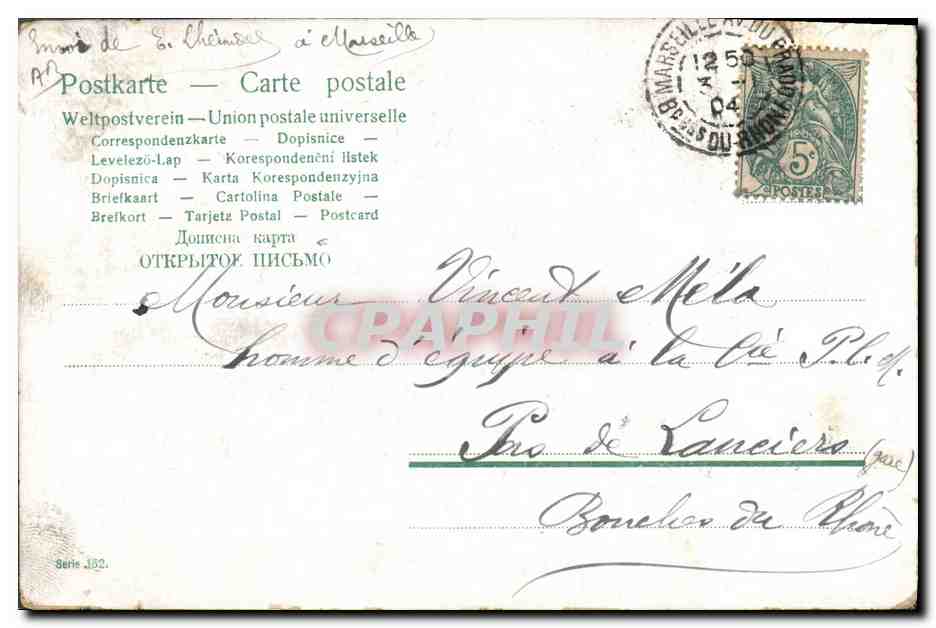 Envoi de E. à Marseille
AR
Postkarte — Carte postale
Weltpostverein — Union postale universelle
Correspondenzkarte — Dopisnice —
Levelező-Lap — Korespondenční lístek
Dopisnica — Karta Korespondenzyjna
Briefkaart — Cartolina Postale —
Brefkort — Tarjeta Postal — Postcard
Дописна карта
ОТКРЫТОЕ ПИСЬМО
MARSEILLE AV. DU PRADO
12 50
3 -
04
BCHES DU-RHONE
5c
POSTES
Monsieur Vincent Méla
CPAPHIL
homme d'équipe à la Cie P.L.M.
Pas de Lanciers
(gare)
Bouches du Rhône
Serie 162.